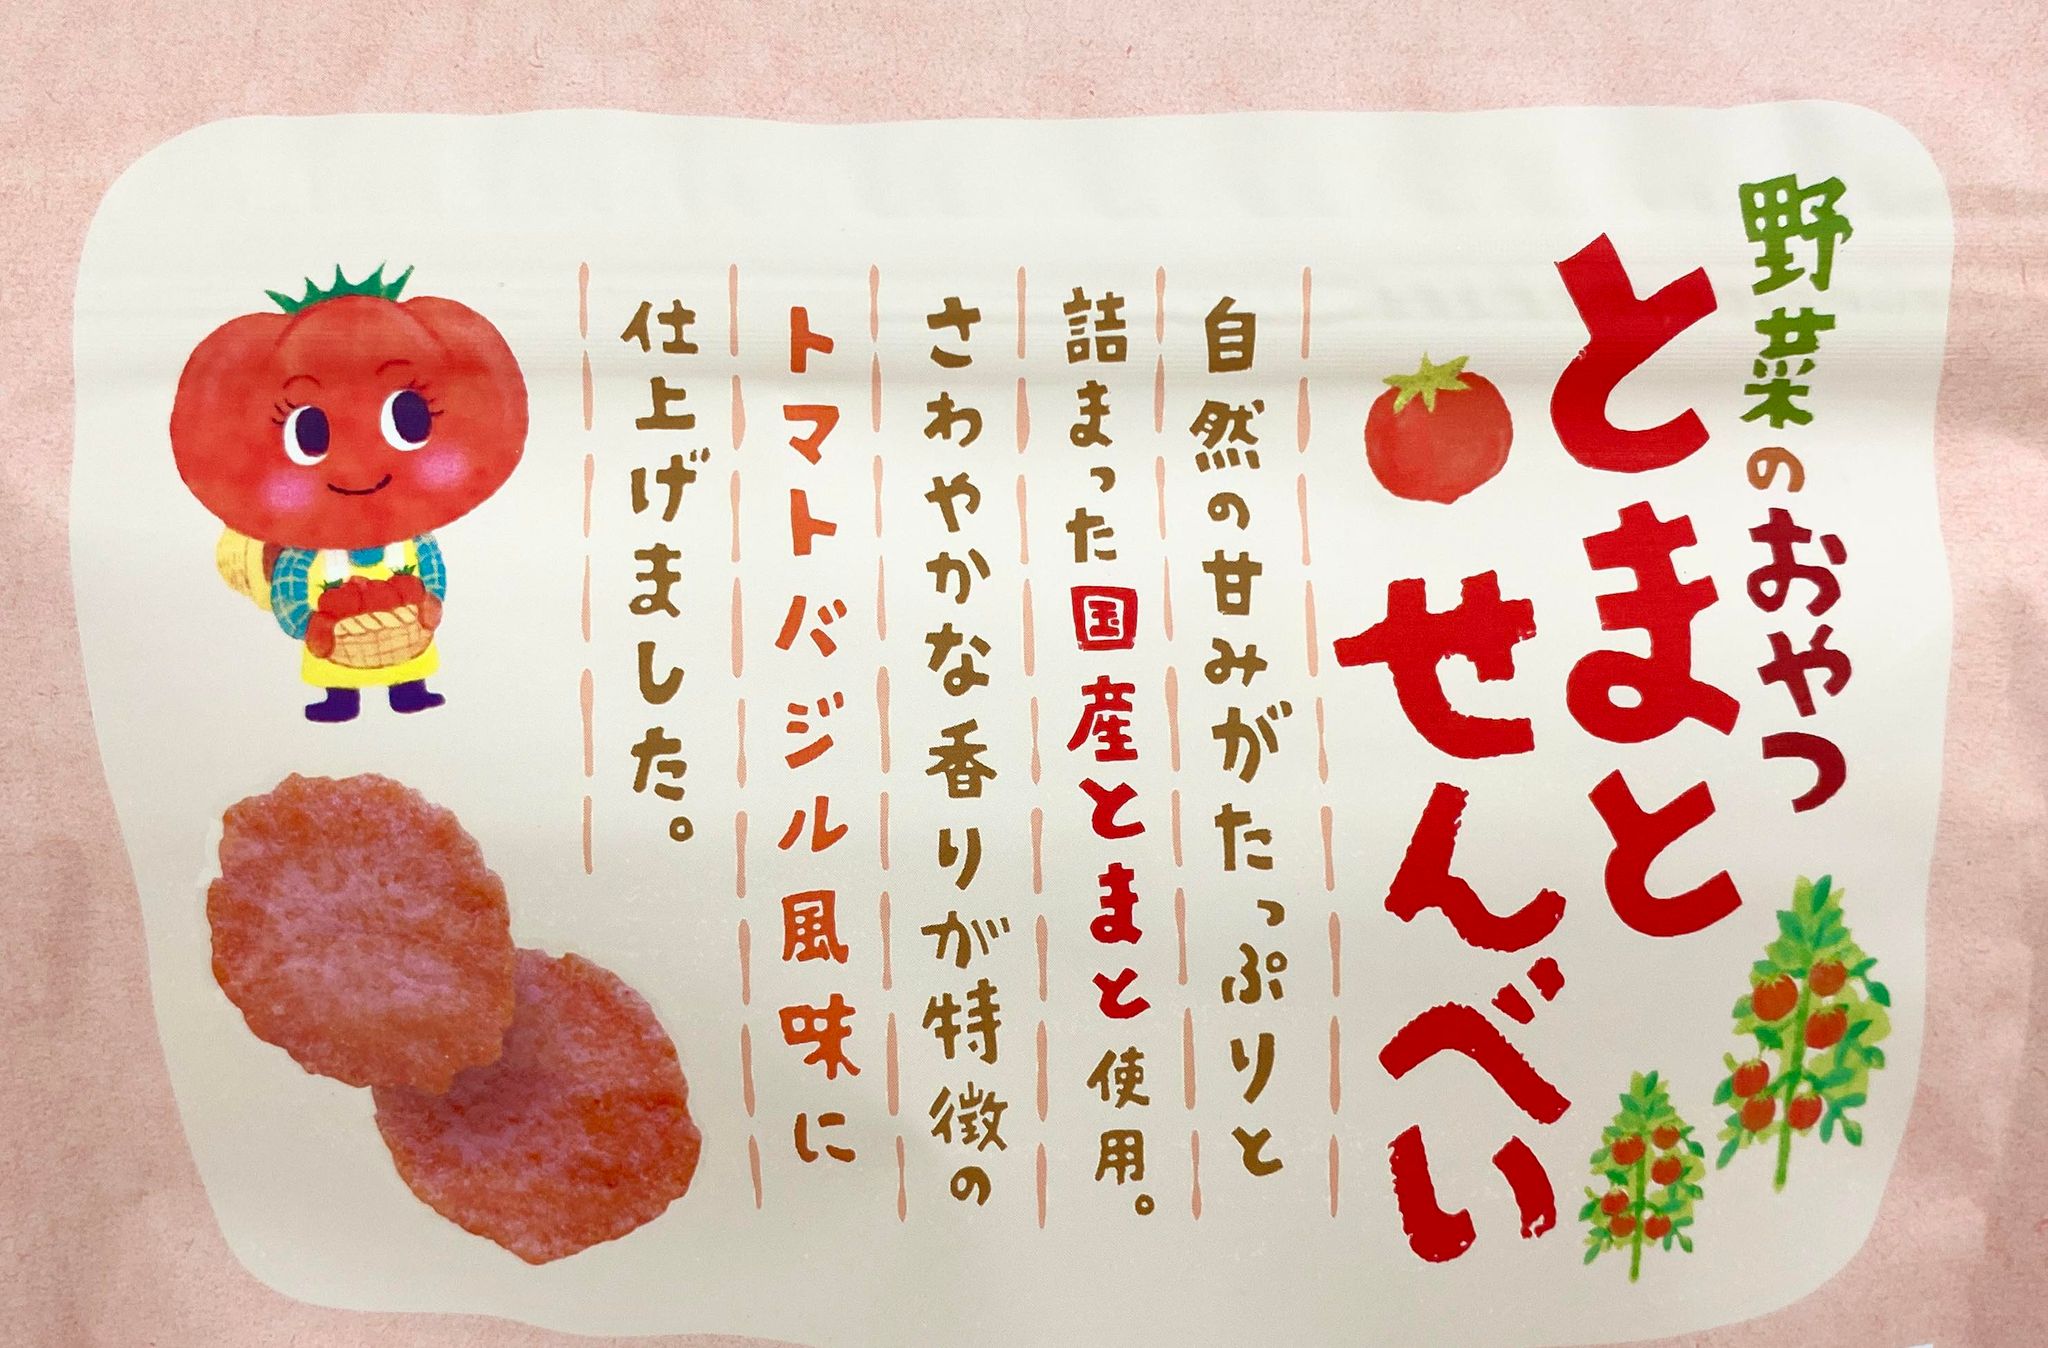 野菜のおやつ
とまと
せんべい
自然の甘みがたっぷりと
詰まった国産とまと使用。
さわやかな香りが特徴の
トマトバジル風味に
仕上げました。